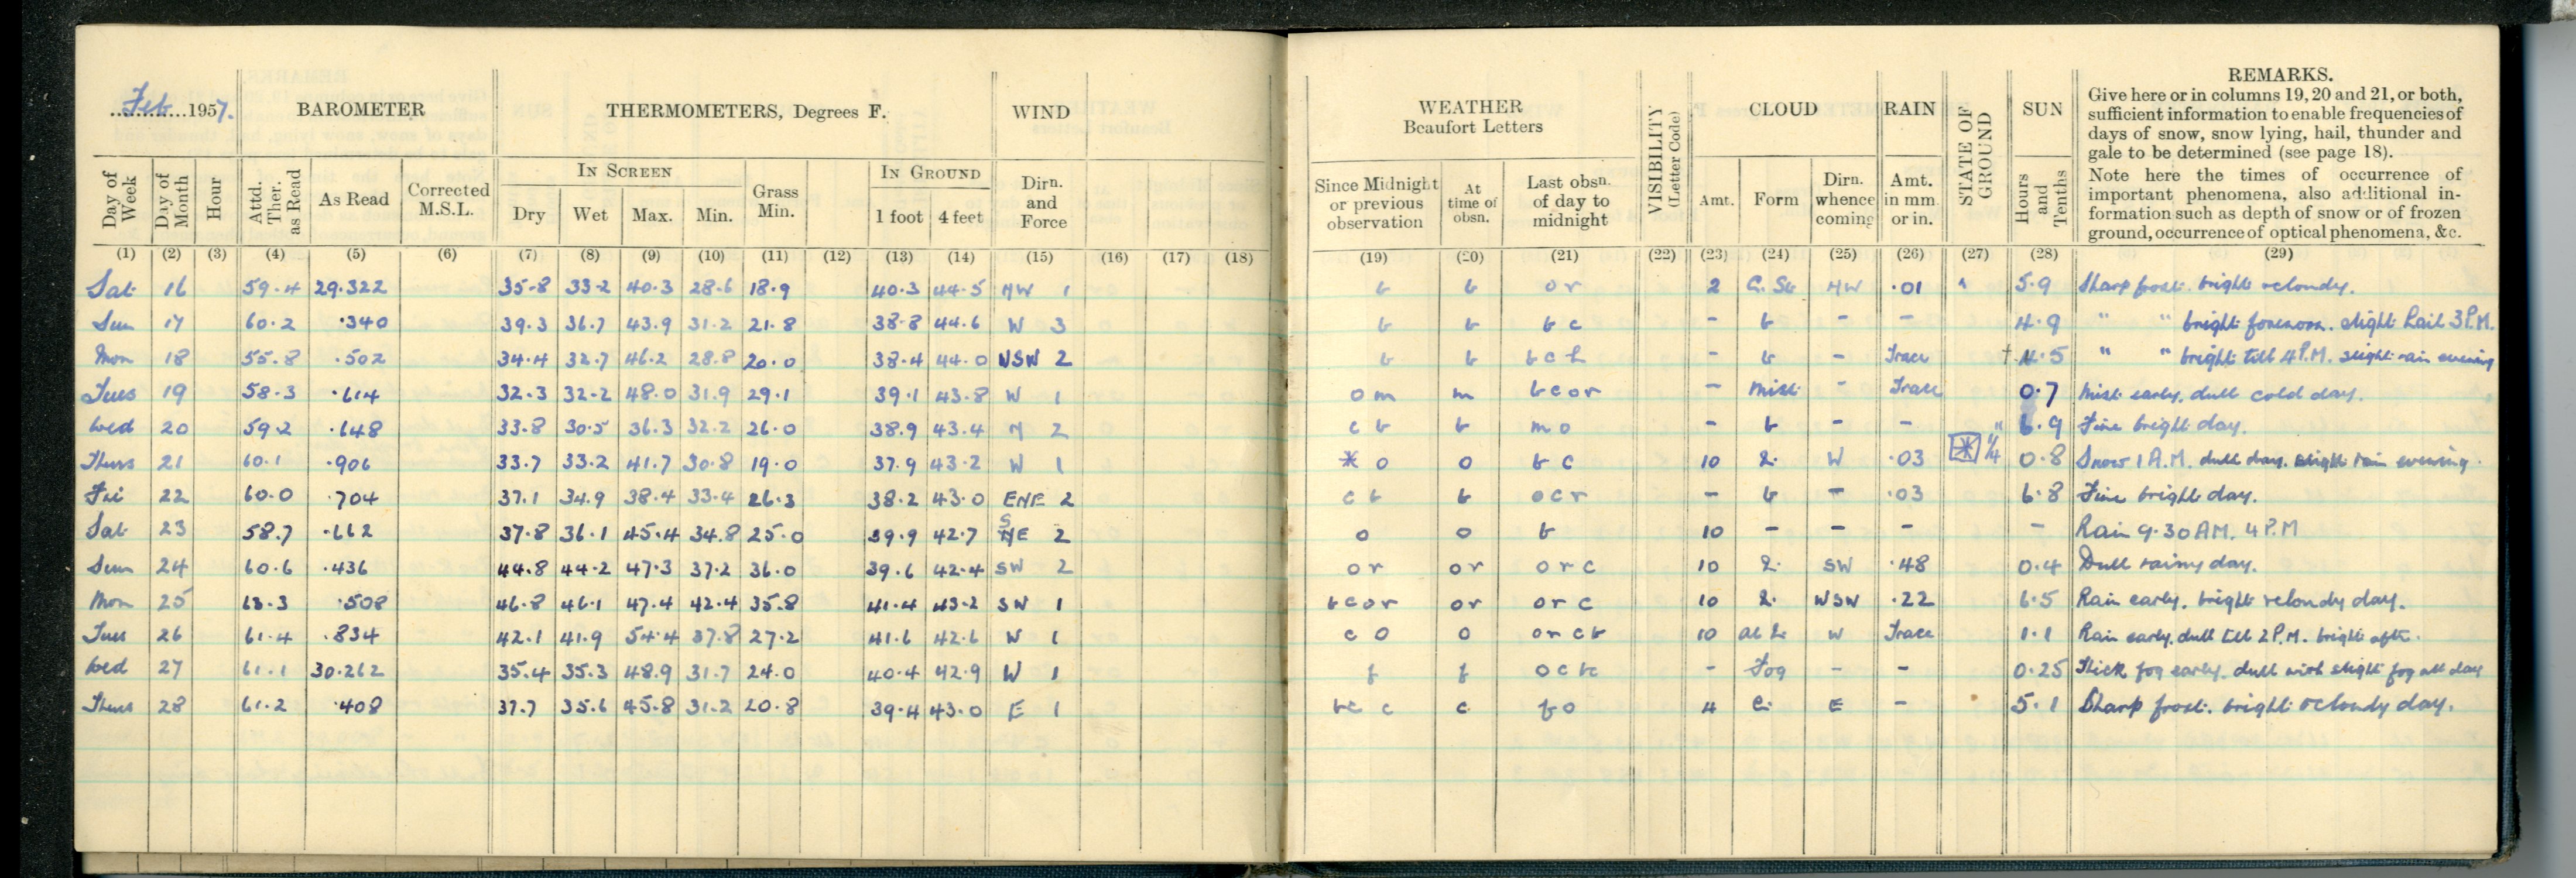 Feb. 1957. BAROMETER THERMOMETERS, Degrees F. WIND
Day of Week Day of Month Hour Attd. Ther. as Read As Read Corrected M.S.L. IN SCREEN Dry Wet Max. Min. Grass Min. IN GROUND 1 foot 4 feet Dirn. and Force
(1) (2) (3) (4) (5) (6) (7) (8) (9) (10) (11) (12) (13) (14) (15) (16) (17) (18)
Sat 16 59.4 29.322 35.8 33.2 40.3 28.6 18.9 40.3 44.5 NW 1
Sun 17 60.2 .340 39.3 36.7 43.9 31.2 21.8 38.8 44.6 W 3
Mon 18 55.8 .502 34.4 32.7 46.2 28.8 20.0 38.4 44.0 WSW 2
Tues 19 58.3 .614 32.3 32.2 48.0 31.9 29.1 39.1 43.8 W 1
Wed 20 59.2 .648 33.8 30.5 36.3 32.2 26.0 38.9 43.4 N 2
Thurs 21 60.1 .906 33.7 33.2 41.7 30.8 19.0 37.9 43.2 W 1
Fri 22 60.0 .704 37.1 34.9 38.4 33.4 26.3 38.2 43.0 ENE 2
Sat 23 58.7 .662 37.8 36.1 45.4 34.8 25.0 39.9 42.7 SE 2
Sun 24 60.6 .436 44.8 44.2 47.3 37.2 36.0 39.6 42.4 SW 2
Mon 25 63.3 .508 46.8 46.1 47.4 42.4 35.8 41.4 43.2 SW 1
Tues 26 61.4 .834 42.1 41.9 54.4 37.8 27.2 41.6 42.6 W 1
Wed 27 61.1 30.262 35.4 35.3 48.9 31.7 24.0 40.4 42.9 W 1
Thurs 28 61.2 .408 37.7 35.6 45.8 31.2 20.8 39.4 43.0 E 1
WEATHER Beaufort Letters VISIBILITY (Letter Code) CLOUD RAIN STATE OF GROUND SUN REMARKS.
Give here or in columns 19, 20 and 21, or both,
sufficient information to enable frequencies of
days of snow, snow lying, hail, thunder and
gale to be determined (see page 18).
Note here the times of occurrence of
important phenomena, also additional in-
formation such as depth of snow or of frozen
ground, occurrence of optical phenomena, &c.
Since Midnight or previous observation At time of obsn. Last obsn. of day to midnight Amt. Form Dirn. whence coming Amt. in mm. or in. Hours and Tenths
(19) (20) (21) (22) (23) (24) (25) (26) (27) (28) (29)
b b or 2 C. St NW .01 5.9 Sharp frost. bright & cloudy.
b b bc - b - - 4.9 " " bright forenoon. slight hail 3 P.M.
b b bch - b - Trace † 4.5 " " bright till 4 P.M. slight rain evening
om m bcor - Mist - Trace 0.7 Mist early. dull cold day.
cb b mo - b - - 6.9 Fine bright day.
* o o bc 10 W .03 1/4 0.8 Snow 1 A.M. dull day. slight rain evening.
cb b ocr - b - .03 6.8 Fine bright day.
o o b 10 - - - - Rain 9.30 AM. 4 P.M
or or orc 10 SW .48 0.4 Dull rainy day.
bcor or orc 10 WSW .22 6.5 Rain early. bright & cloudy day.
co o orcb 10 W Trace 1.1 Rain early. dull till 2 P.M. bright aftn.
f f ocbc - Fog - - 0.25 Thick fog early. dull with slight fog all day
bc c c fo 4 C. E - 5.1 Sharp frost. bright & cloudy day.